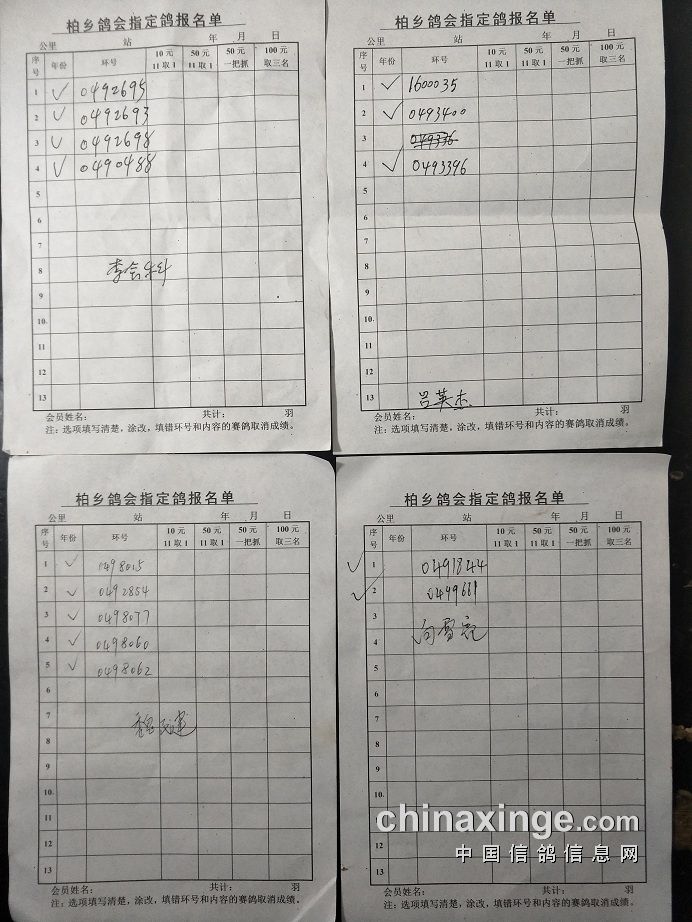 柏乡鸽会指定鸽报名单
公里 站 年 月 日
序号 年份 环号 10元 11取1 50元 11取1 50元 一把抓 100元 取三名
1 ✓ 0492695
2 ✓ 0492693
3 ✓ 0492698
4 ✓ 0490488
5
6
7
8 李会
9
10
11
12
13
会员姓名: 共计: 羽
注:选项填写清楚,涂改,填错环号和内容的赛鸽取消成绩。
柏乡鸽会指定鸽报名单
公里 站 年 月 日
序号 年份 环号 10元 11取1 50元 11取1 50元 一把抓 100元 取三名
1 ✓ 1600035
2 ✓ 0493400
3
4 ✓ 0493396
5
6
7
8
9
10
11
12
13 吕英杰
会员姓名: 共计: 羽
注:选项填写清楚,涂改,填错环号和内容的赛鸽取消成绩。
柏乡鸽会指定鸽报名单
公里 站 年 月 日
序号 年份 环号 10元 11取1 50元 11取1 50元 一把抓 100元 取三名
1 ✓ 0498015
2 ✓ 0492854
3 ✓ 0498077
4 ✓ 0498060
5 ✓ 0498062
6
7
8
9
10
11
12
13
会员姓名: 共计: 羽
注:选项填写清楚,涂改,填错环号和内容的赛鸽取消成绩。
柏乡鸽会指定鸽报名单
公里 站 年 月 日
序号 年份 环号 10元 11取1 50元 11取1 50元 一把抓 100元 取三名
✓ 1 0491844
✓ 2
3
4
5
6
7
8
9
10
11
12
13
会员姓名: 共计: 羽
注:选项填写清楚,涂改,填错环号和内容的赛鸽取消成绩。
chinaxinge.com
中国信鸽信息网